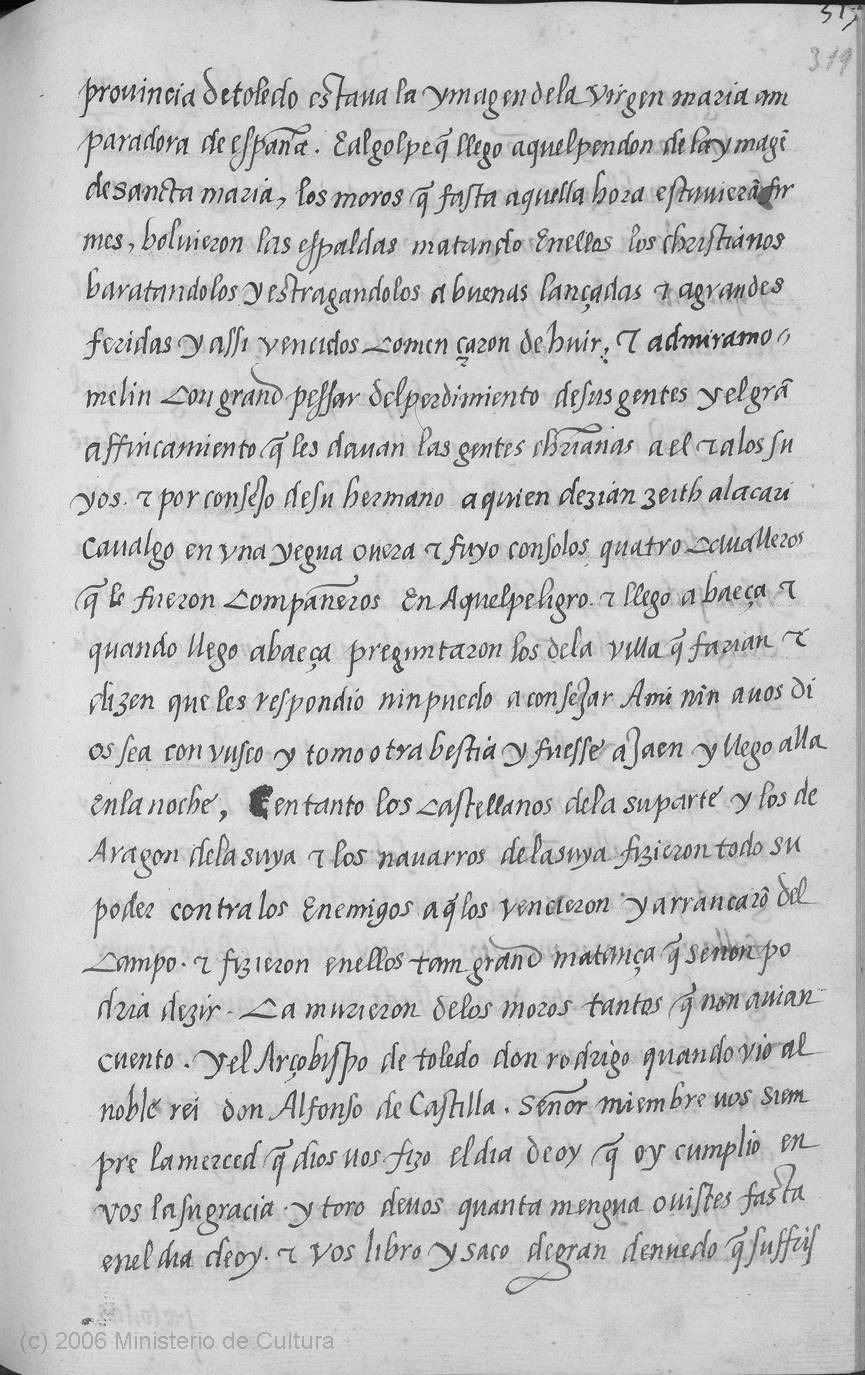 319
prouincia de toledo estaua la ymagen de la virgen maria am
paradora de españa. E al golpe q̃ llego aquel pendon de la ymagẽ
de sancta maria, los moros q̃ fasta aquella hora estuvierã fir
mes, boluieron las espaldas matando En ellos los christianos
baratandolos y estragandolos a buenas lançadas τ a grandes
feridas y assi vencidos comen çaron de huir, τ admiramo-
melin con grand pessar del perdimiento de sus gentes y el grã
affincamiento q̃ les dauan las gentes chr̃ianas a el τ a los su
yos. τ por consejo de su hermano a quien dezian zeith alacari
caualgo en vna yegua overa τ fuyo con solos quatro caualleros
q̃ le fueron compañeros En Aquel peligro. τ llego a baeça τ
quando llego abaeça preguntaron los de la villa q̃ farian τ
dizen que les respondio nin puedo aconsejar A mi nin a vos di
os sea con vusco y tomo otra bestia y fuesse a Jaen y llego alla
En la noche, E en tanto los castellanos de la su parte y los de
Aragon de la suya τ los nauarros de la suya fizieron todo su
poder contra los Enemigos a q̃ los vencieron y arrancarõ del
campo. τ fizieron en ellos tam grand matança q̃ se non po
dria dezir. Ca murieron de los moros tantos q̃ non auian
cuento. y el Arçobispo de toledo don rodrigo quando vio al
noble rei don Alfonso de Castilla. Señor miembre uos siem
pre la merced q̃ dios uos fizo el dia de oy q̃ oy cumplio en
vos la su gracia. y toro deuos quanta mengua ouistes fasta
en el dia de oy. τ vos libro y saco de gran denuedo q̃ suffris
(c) 2006 Ministerio de Cultura